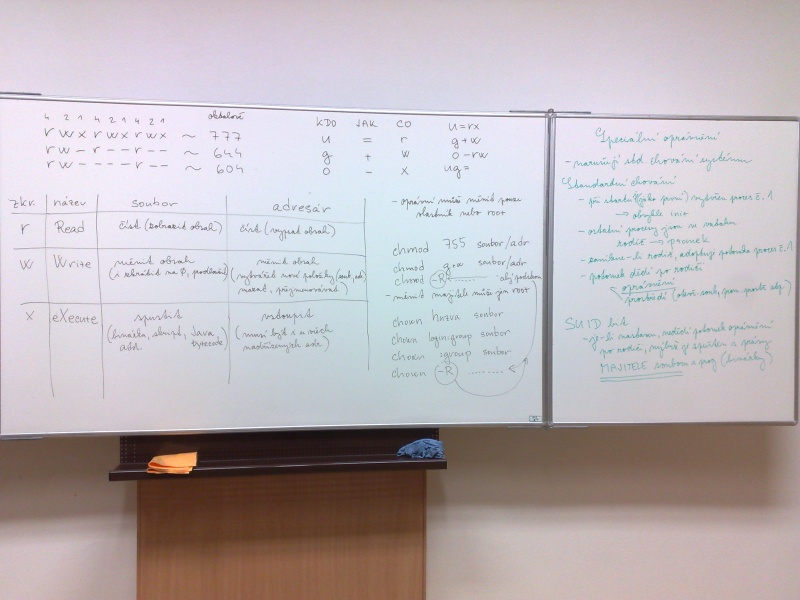 4 2 1 4 2 1 4 2 1
r w x r w x r w x ~ 777
r w - r - - r - - ~ 644
r w - - - - r - - ~ 604
KDO JAK CO
u = r u=rx
g + w g+w
o - x o-rw
ug=
zkr. název soubor adresár
r Read číst (zobrazit obsah) číst (vypsat obsah)
w Write měnit obsah měnit obsah
(i zkrátit na 0, prodloužit) (vytvářet nové položky
mazat, přejmenovávat)
x eXecute spustit vstoupit
(binárka, skript, Java (musí být i u všech
bytecode) nadřízených adr.)
- oprávnění může měnit pouze
vlastník nebo root
chmod 755 soubor/adr
chmod g+w soubor/adr
chmod -R ........
- měnit majitele může jen root
chown honza soubor
chown login:group soubor
chown :group soubor
chown -R ........
Speciální oprávnění
- narušují std chování systému
Standardní chování
- při startu (jako první) vytvořen proces č. 1
→ obvykle init
- ostatní procesy jsou ve vztahu
rodič → potomek
- zanikne-li rodič, adoptuje potomka proces č. 1
- potomek dědí po rodiči
oprávnění
prostředí
SUID bit
- je-li nastaven, nedědí potomek oprávnění
po rodiči, nýbrž je spuštěn s právy
MAJITELE souboru s prog (binárky)